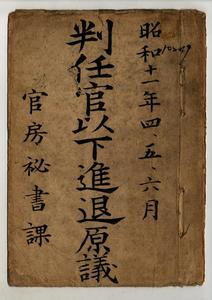 昭和十一年四、五、六月
判任官以下進退原議
官房祕書課